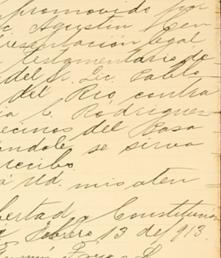 promovido por
Agustin
presentación legal
testamentaria de
del Sr. Lic. Pablo
del Rio contra
Rodriguez
vecinos del
se sirva
recibo
á Ud. mis aten
Libertad y Constitucion
Febrero 13 de 1913.